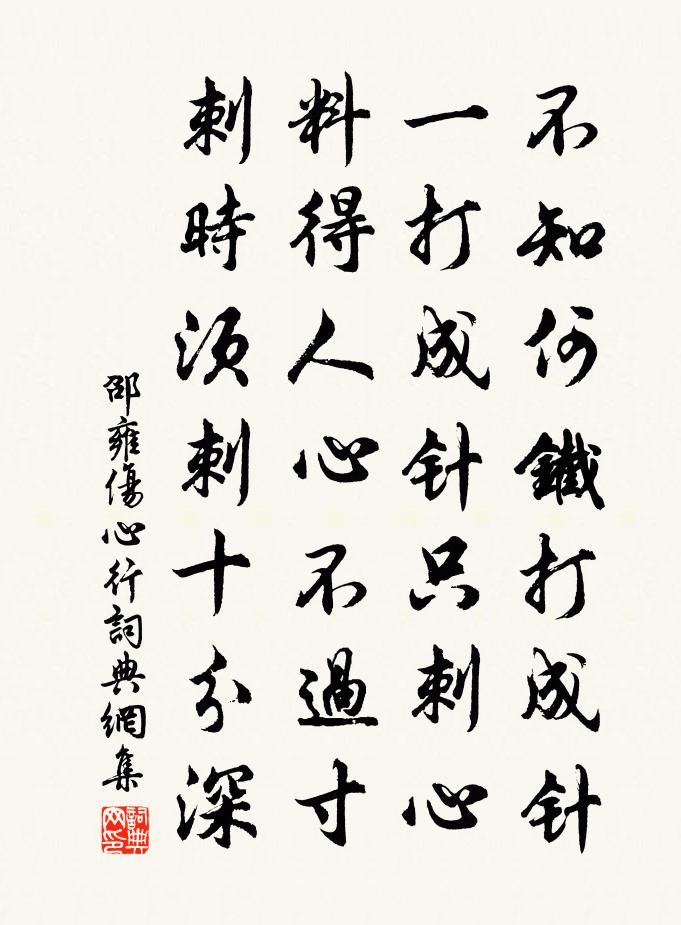 不知何鐵打成针
一打成针只刺心
料得人心不過寸
刺時須刺十分深
邵雍傷心行詞典網集
詞典
网印